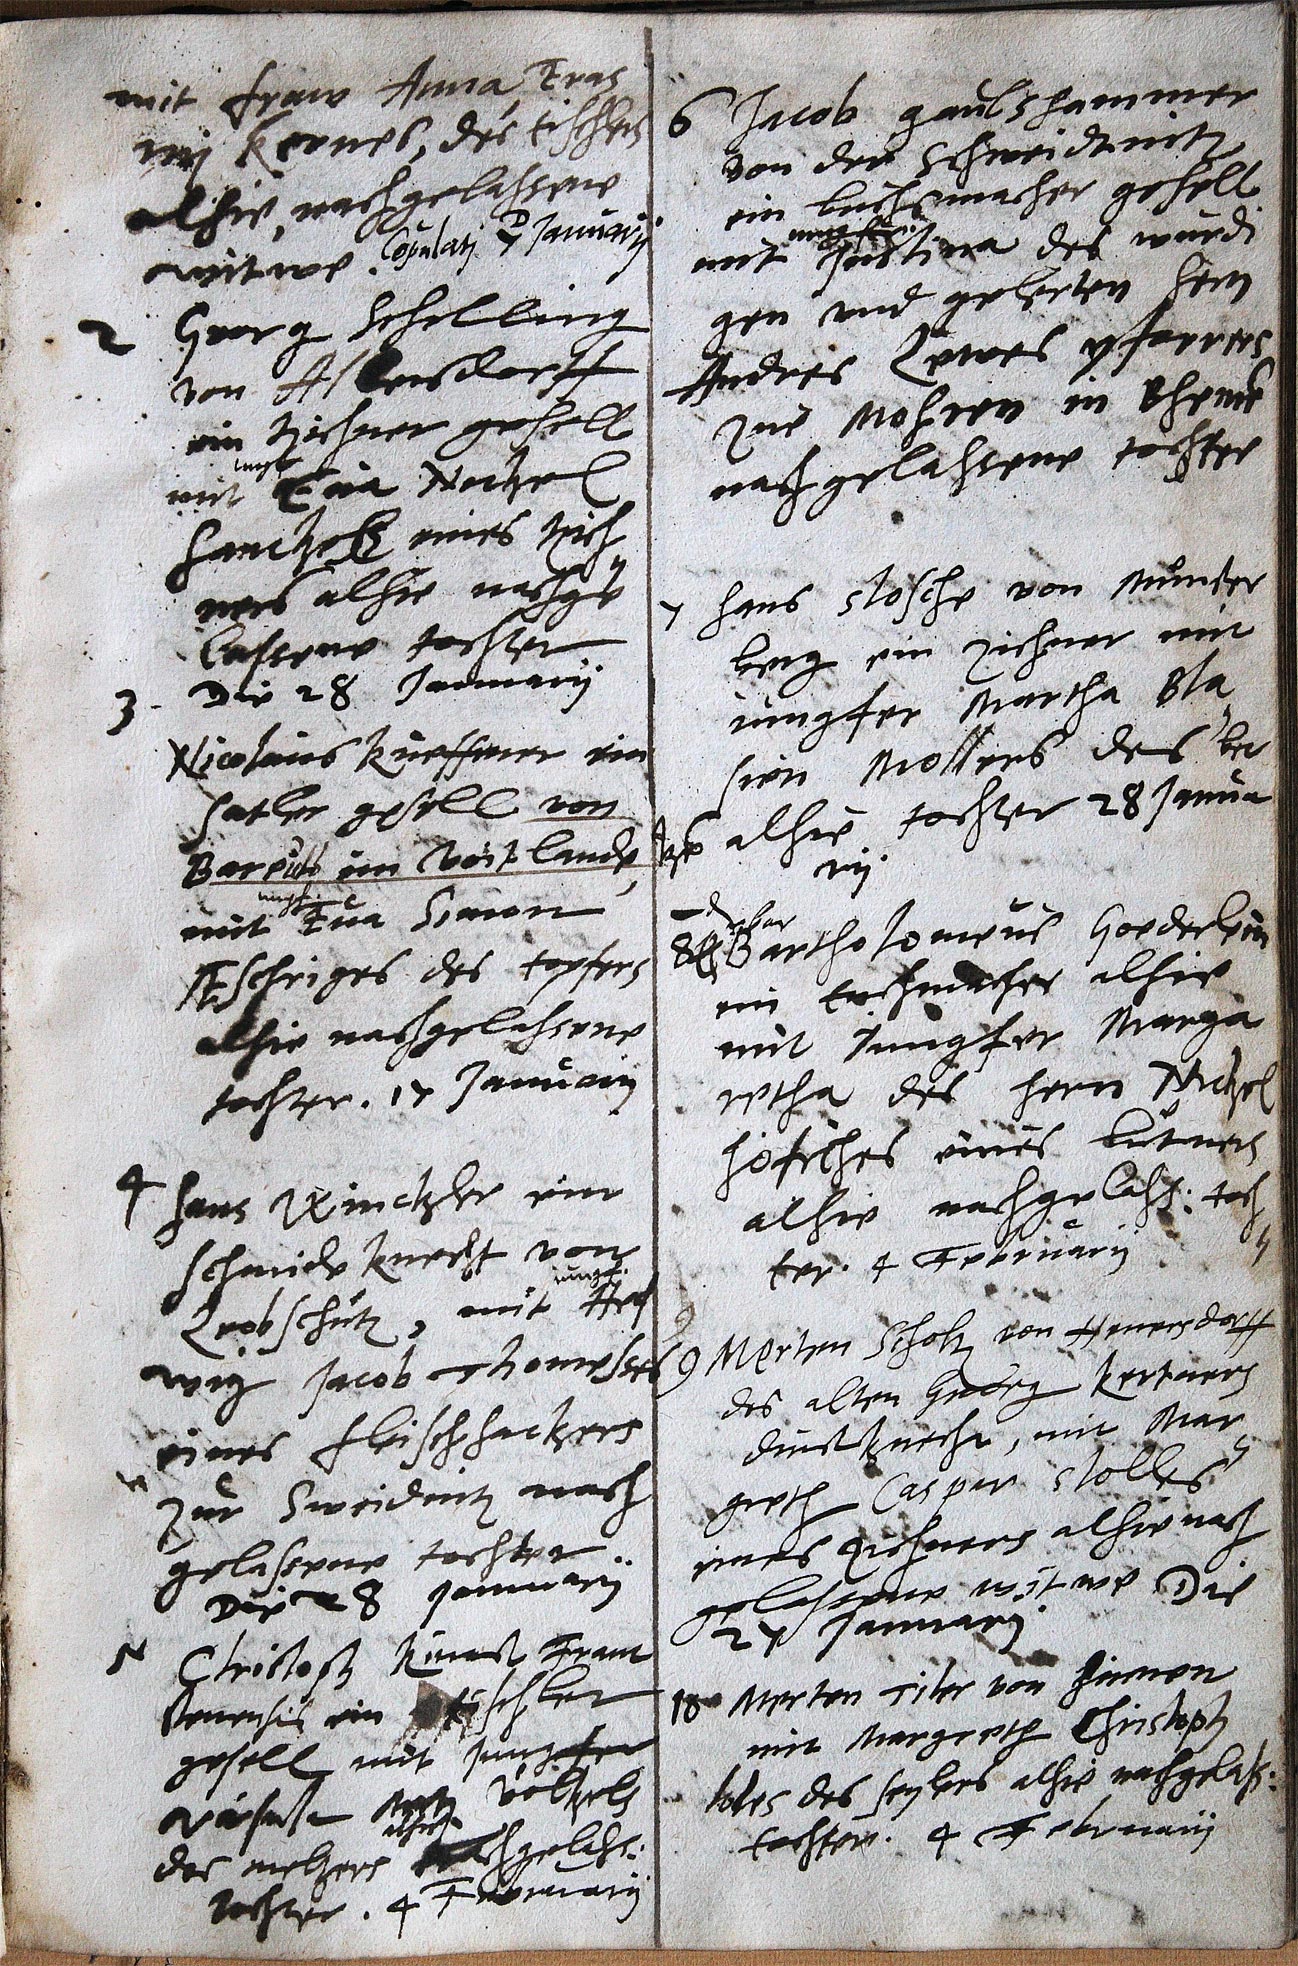 mit fraw Anna Eras
mj Kernes, des tischlers
alhie, nachgelassene
witwe. Copulatj 7 Januarij
2 Georg Schelling
von
ein zichner gesell
mit jungf. Eua Nickel
eines zich
ners alhie nachge
lassene tochter
Die 28 Januarij
3
Nicolaus Kueffner ein
satler gesell von
Bareuth im Voitlande,
mit jungf. Eua Simon
des topfers
alhie nachgelassene
tochter. 17 Januarij
4 Hans Winckler ein
schmide knecht von
Leobschütz, mit jungf. Hed
wig Jacob
eines fleischhackers
zur Sweidnitz nach
gelassene tochter
Die 28 Januarij
5 Christoph Kunast Franc
stenensis ein tischler
gesell mit jungfer
Völkels
des melzers alhie nachgelass:
tochter. 4 Februarij
6 Jacob gaulshammer
von der Schweidnitz
ein tuchmacher gesell
mit jungf. Justina des wurdi
gen und gelerten hern
Andres Lewes pfarrers
zue Mohren in Bheme
nachgelassene tochter
7 Hans Stosche von Munster
berg ein zichner mit
jungfer Martha Bla
sien Mollers des bec
alhie tochter 28 Janua
rij.
8 Bartholomeus Goederlein
ein tuchmacher alhie
mit Jungfer Marga
retha des hern Nickel
eines kutners
alhie nachgelass: toch
ter. 4 Februarij
9 Merten Scholtz von
des alten Georg
dinstknecht, mit Mar
greth Caspar Stolles
eines zichners alhie nach
gelassene witwe Die
27 Januarij
10 Merten Tiler von
mit Margreth Christoph
des seylers alhie nachgelass:
tochter. 4 Februarij